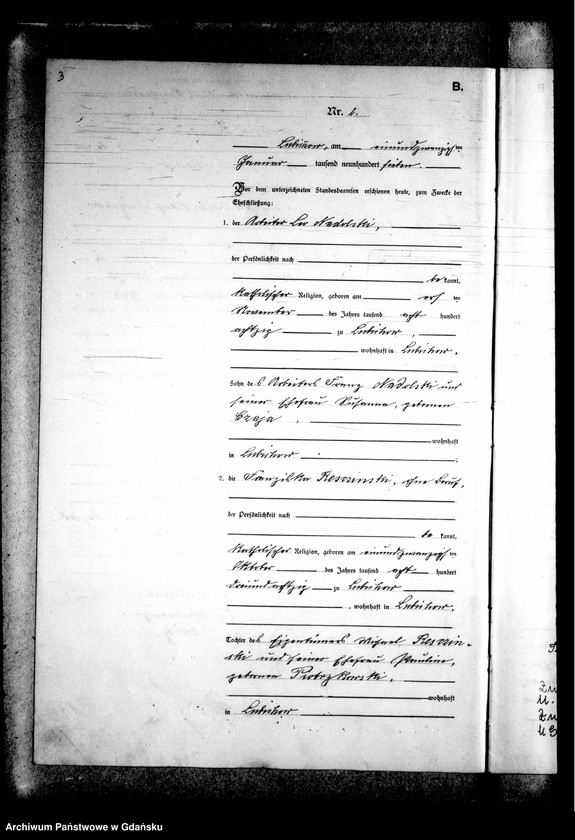 3
B.
Nr. 6.
Lubichow, am einundzwanzigsten
Januar tausend neunhundert sieben.
Vor dem unterzeichneten Standesbeamten erschienen heute, zum Zwecke der
Eheschließung:
1. der Arbeiter Leo Nadolski,
der Persönlichkeit nach
bekannt,
katholischer Religion, geboren am ten
November des Jahres tausend acht hundert
achtzig zu Lubichow,
wohnhaft in Lubichow.
Sohn des Arbeiters Franz Nadolski und
seiner Ehefrau Susanna, geborenen
Czaja.
wohnhaft
in Lubichow;
2. die Franziska Resczinski, ohne Beruf,
der Persönlichkeit nach
bekannt,
katholischer Religion, geboren am einundzwanzigsten
Oktober des Jahres tausend acht hundert
dreiundachtzig zu Lubichow
, wohnhaft in Lubichow.
Tochter des Eigentümers Michael Resczin-
ski und seiner Ehefrau Pauline,
geborenen Piotrzkowski,
wohnhaft
in Lubichow
Archiwum Państwowe w Gdańsku